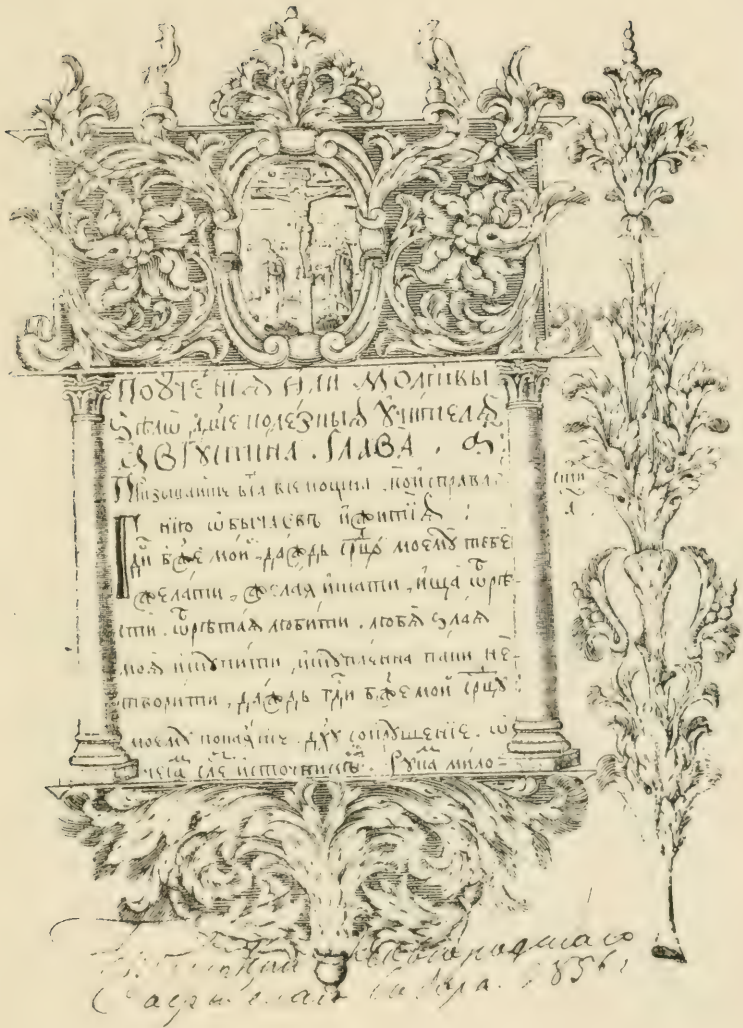 Поꙋче́нїѧ и҆лѝ Моли́твы
ѕѣлѡ̀ дш҃еполе́зныѧ ᲂу҆чи́телѧ
А҆ѵгꙋсти́на. Глава̀. а҃.
Призыва́нїе бг҃а всемо́щна, ко и҆справле
нїю ѡ҆бы́чаевъ и҆ житїѧ̀:
Гдⷭ҇и бж҃е мо́й да́ждь срⷣцꙋ моемꙋ̀ тебѐ
жела́ти, жела́ѧ и҆ска́ти, и҆ща̀ ѡ҆брѣ
сти. ѡ҆брѣта́ѧ люби́ти. любѧ̀ ѕла́ѧ
моѧ̀ и҆скупи́ти, и҆скупле́нна па́ки не
твори́ти, да́ждь гдⷭ҇и бж҃е мо́й срⷣцꙋ
моемꙋ̀ покаѧ́нїе. дх҃ꙋ сокрꙋше́нїе. ѡ
чема сле́зъ и҆сто́чникъ. Рꙋка́ма мило
1856